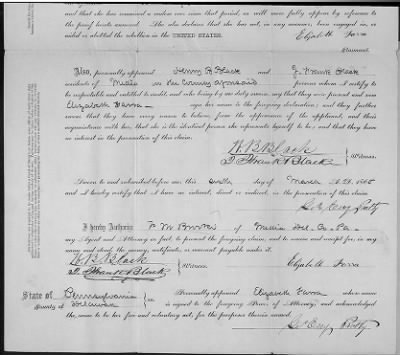 and that she has remained a widow ever since that period, as will more fully appear by reference to
the proof hereto annexed. She also declares that she has not, in any manner, been engaged in, or
aided or abetted the rebellion in the UNITED STATES.
Elizabeth
Claimant.
Also, personally appeared Henry B Black and J. Frank Black
residents of Media in the County aforesaid persons whom I certify to
be respectable and entitled to credit, and who being by me duly sworn, say that they were present and saw
Elizabeth sign her name to the foregoing declaration; and they further
swear that they have every reason to believe, from the appearance of the applicant, and their
acquaintance with her, that she is the identical person she represents herself to be; and that they have
no interest in the prosecution of this claim.
H. B. Black
J. Frank Black
Witnesses.
Sworn to and subscribed before me, this day of March A.D. 1865
and I hereby certify that I have no interest, direct or indirect, in the prosecution of this claim.
I hereby Authorize F. M. of Media Del. Co. Pa.
my Agent and Attorney in fact, to present the foregoing claim, and to receive and receipt for, in my
name and stead the money, certificate, or warrant payable under it.
H. B. Black
J. Frank Black
Witnesses.
Elizabeth
State of Pennsylvania
County of Delaware
ss.
Personally appeared Elizabeth whose name
is signed to the foregoing Power of Attorney, and acknowledged
the same to be her free and voluntary act, for the purposes therein named.